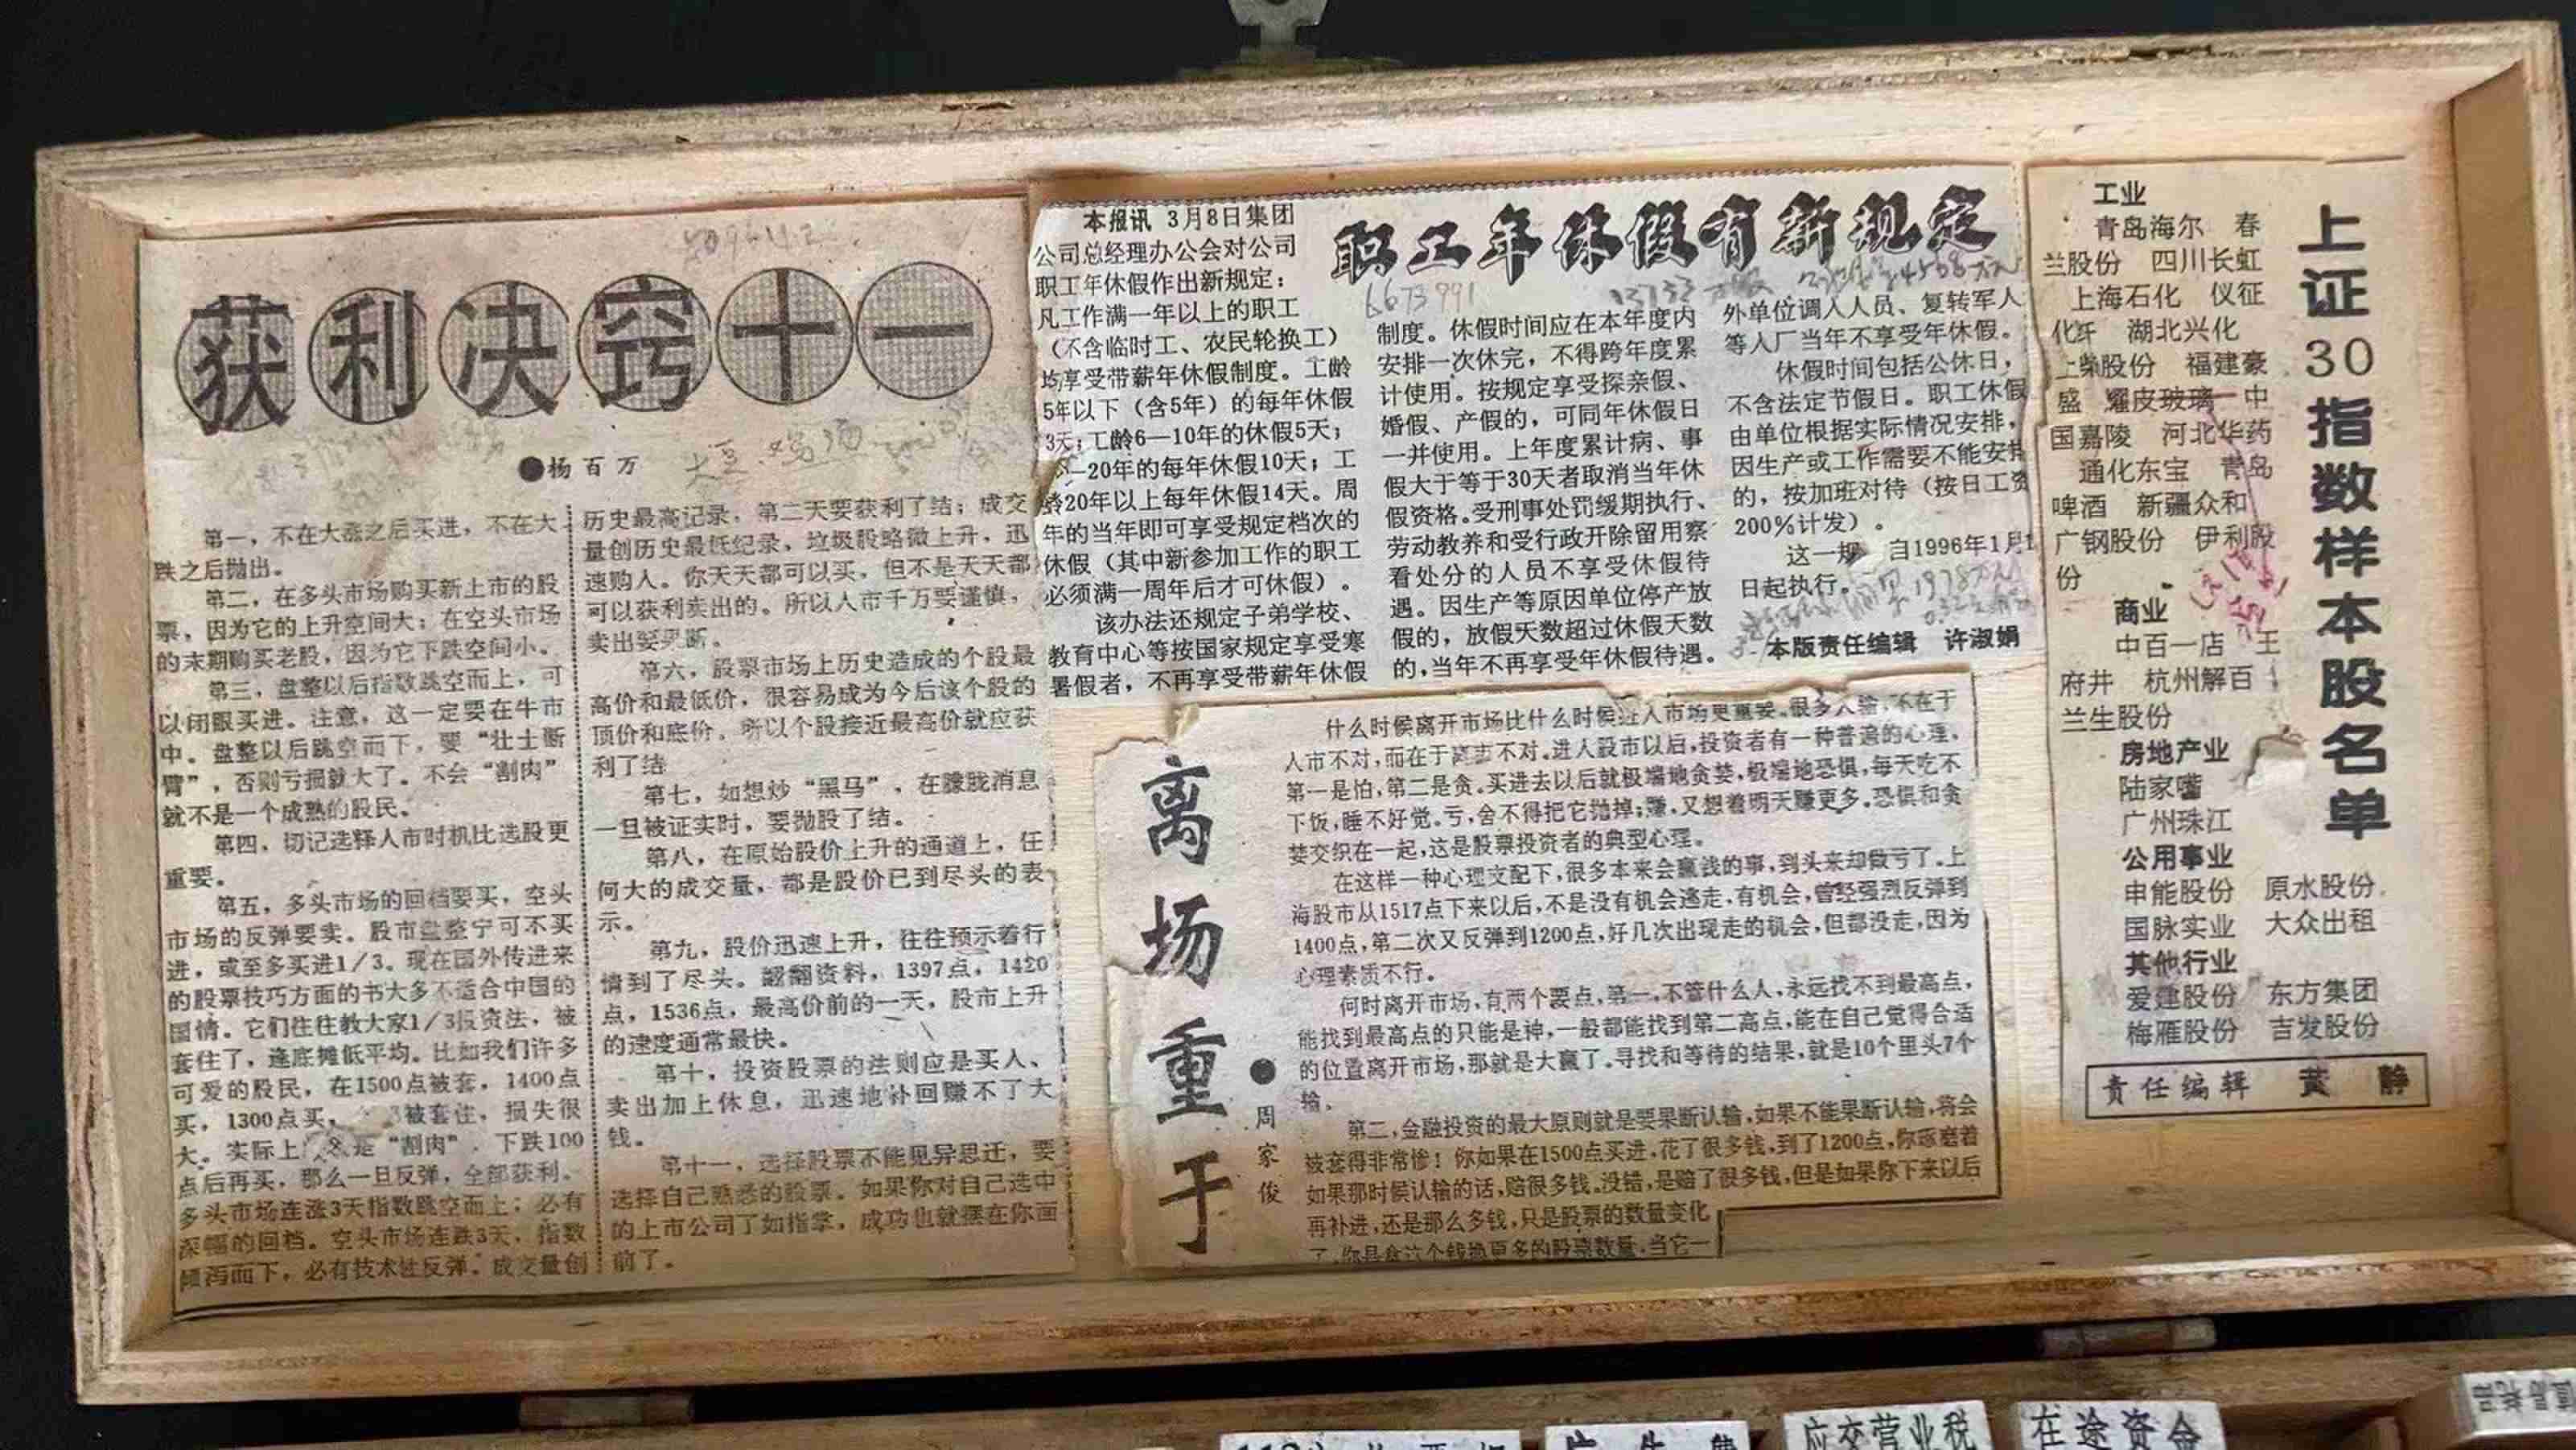 获利决窍十一
●杨百万
第一，不在大涨之后买进，不在大
跌之后抛出。
第二，在多头市场购买新上市的股
票，因为它的上升空间大；在空头市场
的末期购买老股，因为它下跌空间小。
第三，盘整以后指数跳空而上，可
以闭眼买进。注意，这一定要在牛市
中。盘整以后跳空而下，要“壮士断
臂”，否则亏损就大了。不会“割肉”
就不是一个成熟的股民。
第四，切记选择入市时机比选股更
重要。
第五，多头市场的回档要买，空头
市场的反弹要卖。股市盘整宁可不买
进，或至多买进1/3。现在国外传进来
的股票技巧方面的书大多不适合中国的
国情。它们往往教大家1/3投资法，被
套住了，逢底摊低平均。比如我们许多
可爱的股民，在1500点被套，1400点
买，1300点买，被套住，损失很
大。实际上是“割肉”．下跌100
点后再买，那么一旦反弹，全部获利。
多头市场连涨3天指数跳空而上；必有
深幅的回档。空头市场连跌3天，指数
倾泻而下，必有技术性反弹。成交量创
历史最高记录，第二天要获利了结；成交
量创历史最低纪录，垃圾股略微上升，迅
速购入。你天天都可以买，但不是天天都
可以获利卖出的。所以入市千万要谨慎，
卖出要果断。
第六，股票市场上历史造成的个股最
高价和最低价，很容易成为今后该个股的
顶价和底价。所以个股接近最高价就应获
利了结
第七，如想炒“黑马”，在朦胧消息
一旦被证实时，要抛股了结。
第八，在原始股价上升的通道上，任
何大的成交量，都是股价已到尽头的表
示。
第九，股价迅速上升，往往预示着行
情到了尽头。翻翻资料，1397点，1420
点，1536点，最高价前的一天，股市上升
的速度通常最快。
第十，投资股票的法则应是买入、
卖出加上休息，迅速地补回赚不了大
钱。
第十一，选择股票不能见异思迁，要
选择自己熟悉的股票。如果你对自己选中
的上市公司了如指掌，成功也就摆在你面
前了。
职工年休假有新规定
6673991
本报讯 3月8日集团
公司总经理办公会对公司
职工年休假作出新规定：
凡工作满一年以上的职工
（不含临时工、农民轮换工）
均享受带薪年休假制度。工龄
5年以下（含5年）的每年休假
3天；工龄6—10年的休假5天；
—20年的每年休假10天；工
龄20年以上每年休假14天。周
年的当年即可享受规定档次的
休假（其中新参加工作的职工
必须满一周年后才可休假）。
该办法还规定子弟学校、
教育中心等按国家规定享受寒
暑假者，不再享受带薪年休假
制度。休假时间应在本年度内
安排一次休完，不得跨年度累
计使用。按规定享受探亲假、
婚假、产假的，可同年休假日
一并使用。上年度累计病、事
假大于等于30天者取消当年休
假资格。受刑事处罚缓期执行、
劳动教养和受行政开除留用察
看处分的人员不享受休假待
遇。因生产等原因单位停产放
假的，放假天数超过休假天数
的，当年不再享受年休假待遇。
外单位调入人员、复转军人
等入厂当年不享受年休假。
休假时间包括公休日，
不含法定节假日。职工休假
由单位根据实际情况安排，
因生产或工作需要不能安排
的，按加班对待（按日工资
200%计发）。
这一规 自1996年1月1
日起执行。
本版责任编辑 许淑娟
离场重于
●周家俊
什么时候离开市场比什么时候进入市场更重要。很多人输，不在于
入市不对，而在于离市不对。进入股市以后，投资者有一种普遍的心理、
第一是怕，第二是贪。买进去以后就极端地贪婪，极端地恐惧，每天吃不
下饭，睡不好觉。亏，舍不得把它抛掉；赚，又想着明天赚更多。恐惧和贪
婪交织在一起，这是股票投资者的典型心理。
在这样一种心理支配下，很多本来会赢钱的事，到头来却做亏了。上
海股市从1517点下来以后，不是没有机会逃走，有机会，曾经强烈反弹到
1400点，第二次又反弹到1200点，好几次出现走的机会，但都没走，因为
心理素质不行。
何时离开市场，有两个要点，第一，不管什么人，永远找不到最高点，
能找到最高点的只能是神，一般都能找到第二高点，能在自己觉得合适
的位置离开市场，那就是大赢了。寻找和等待的结果，就是10个里头7个
输。
第二，金融投资的最大原则就是要果断认输，如果不能果断认输，将会
被套得非常惨！你如果在1500点买进，花了很多钱，到了1200点，你琢磨着
如果那时候认输的话，赔很多钱。没错，是赔了很多钱，但是如果你下来以后
再补进，还是那么多钱，只是股票的数量变化
了，你是拿这个钱换更多的股票数量，当它一
上证30指数样本股名单
工业
青岛海尔 春
兰股份 四川长虹
上海石化 仪征
化纤 湖北兴化
上柴股份 福建豪
盛 耀皮玻璃 中
国嘉陵 河北华药
通化东宝 青岛
啤酒 新疆众和
广钢股份 伊利股
份
商业
中百一店 王
府井 杭州解百
兰生股份
房地产业
陆家嘴
广州珠江
公用事业
申能股份 原水股份
国脉实业 大众出租
其他行业
爱建股份 东方集团
梅雁股份 吉发股份
责任编辑 黄静
应交营业税
在途资金